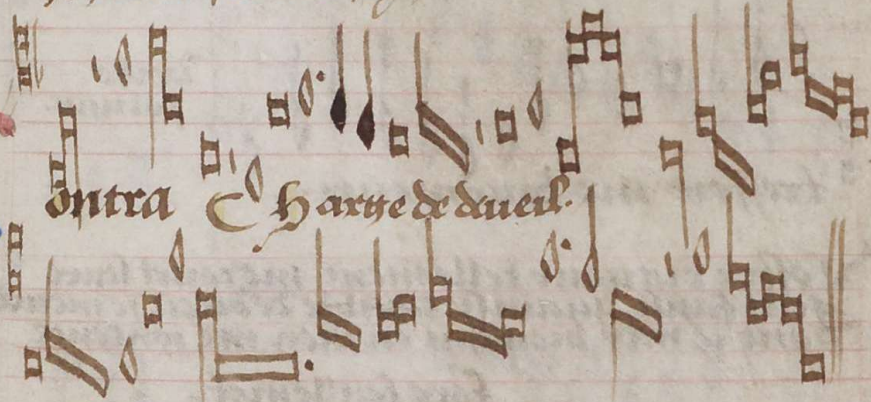 ontra Charge de dueil.